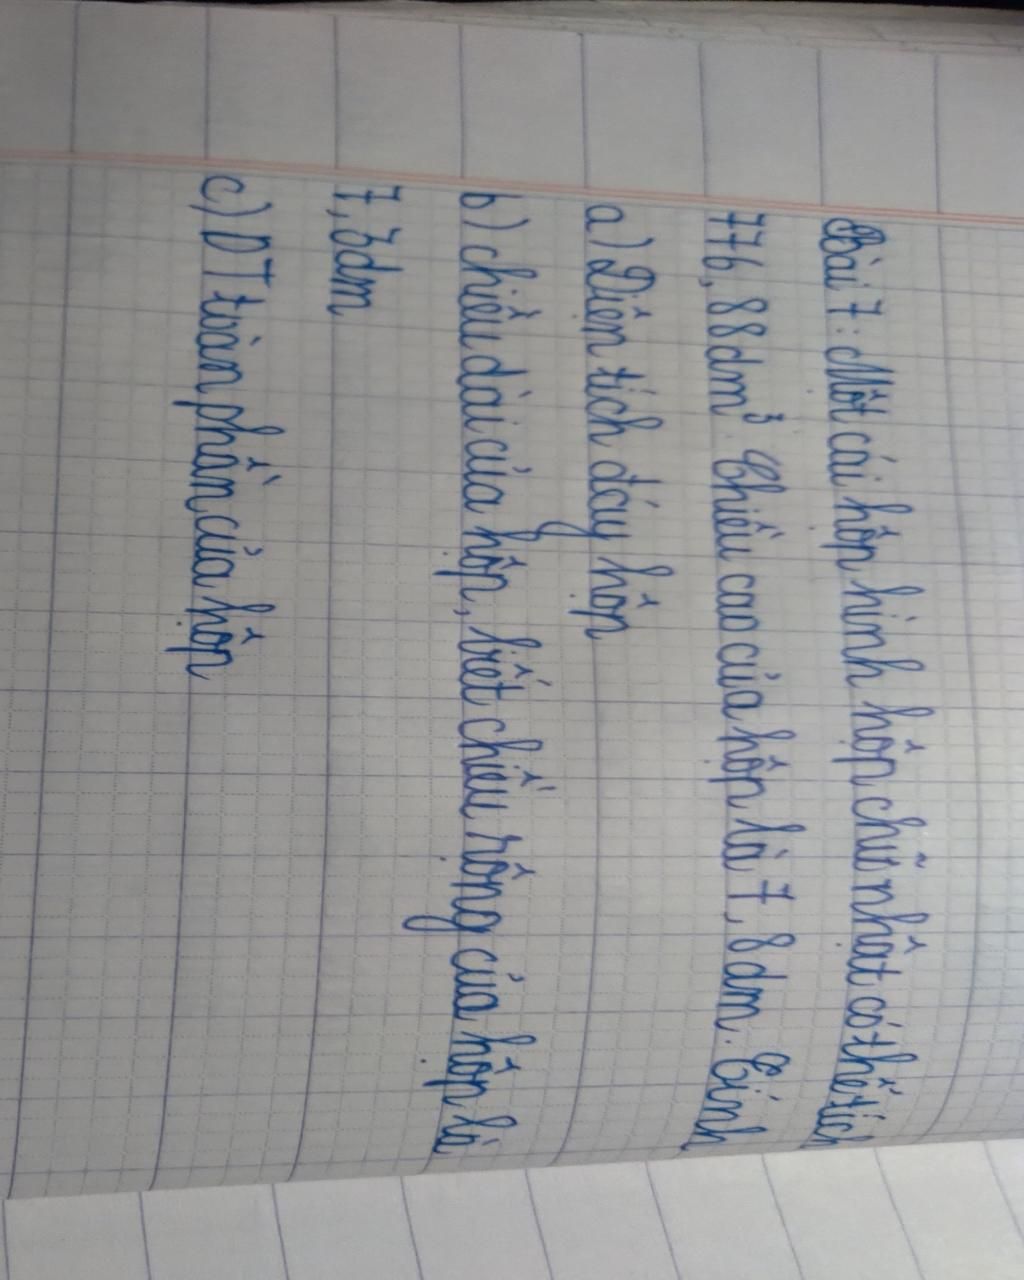 Bài 7: Một cái hộp hình hộp chữ nhật có thể tích
776,88dm³. Chiều cao của hộp là 7,8dm. Tính
a) Diện tích đáy hộp
b) chiều dài của hộp, biết chiều rộng của hộp là
7,3dm
c) DT toàn phần của hộp